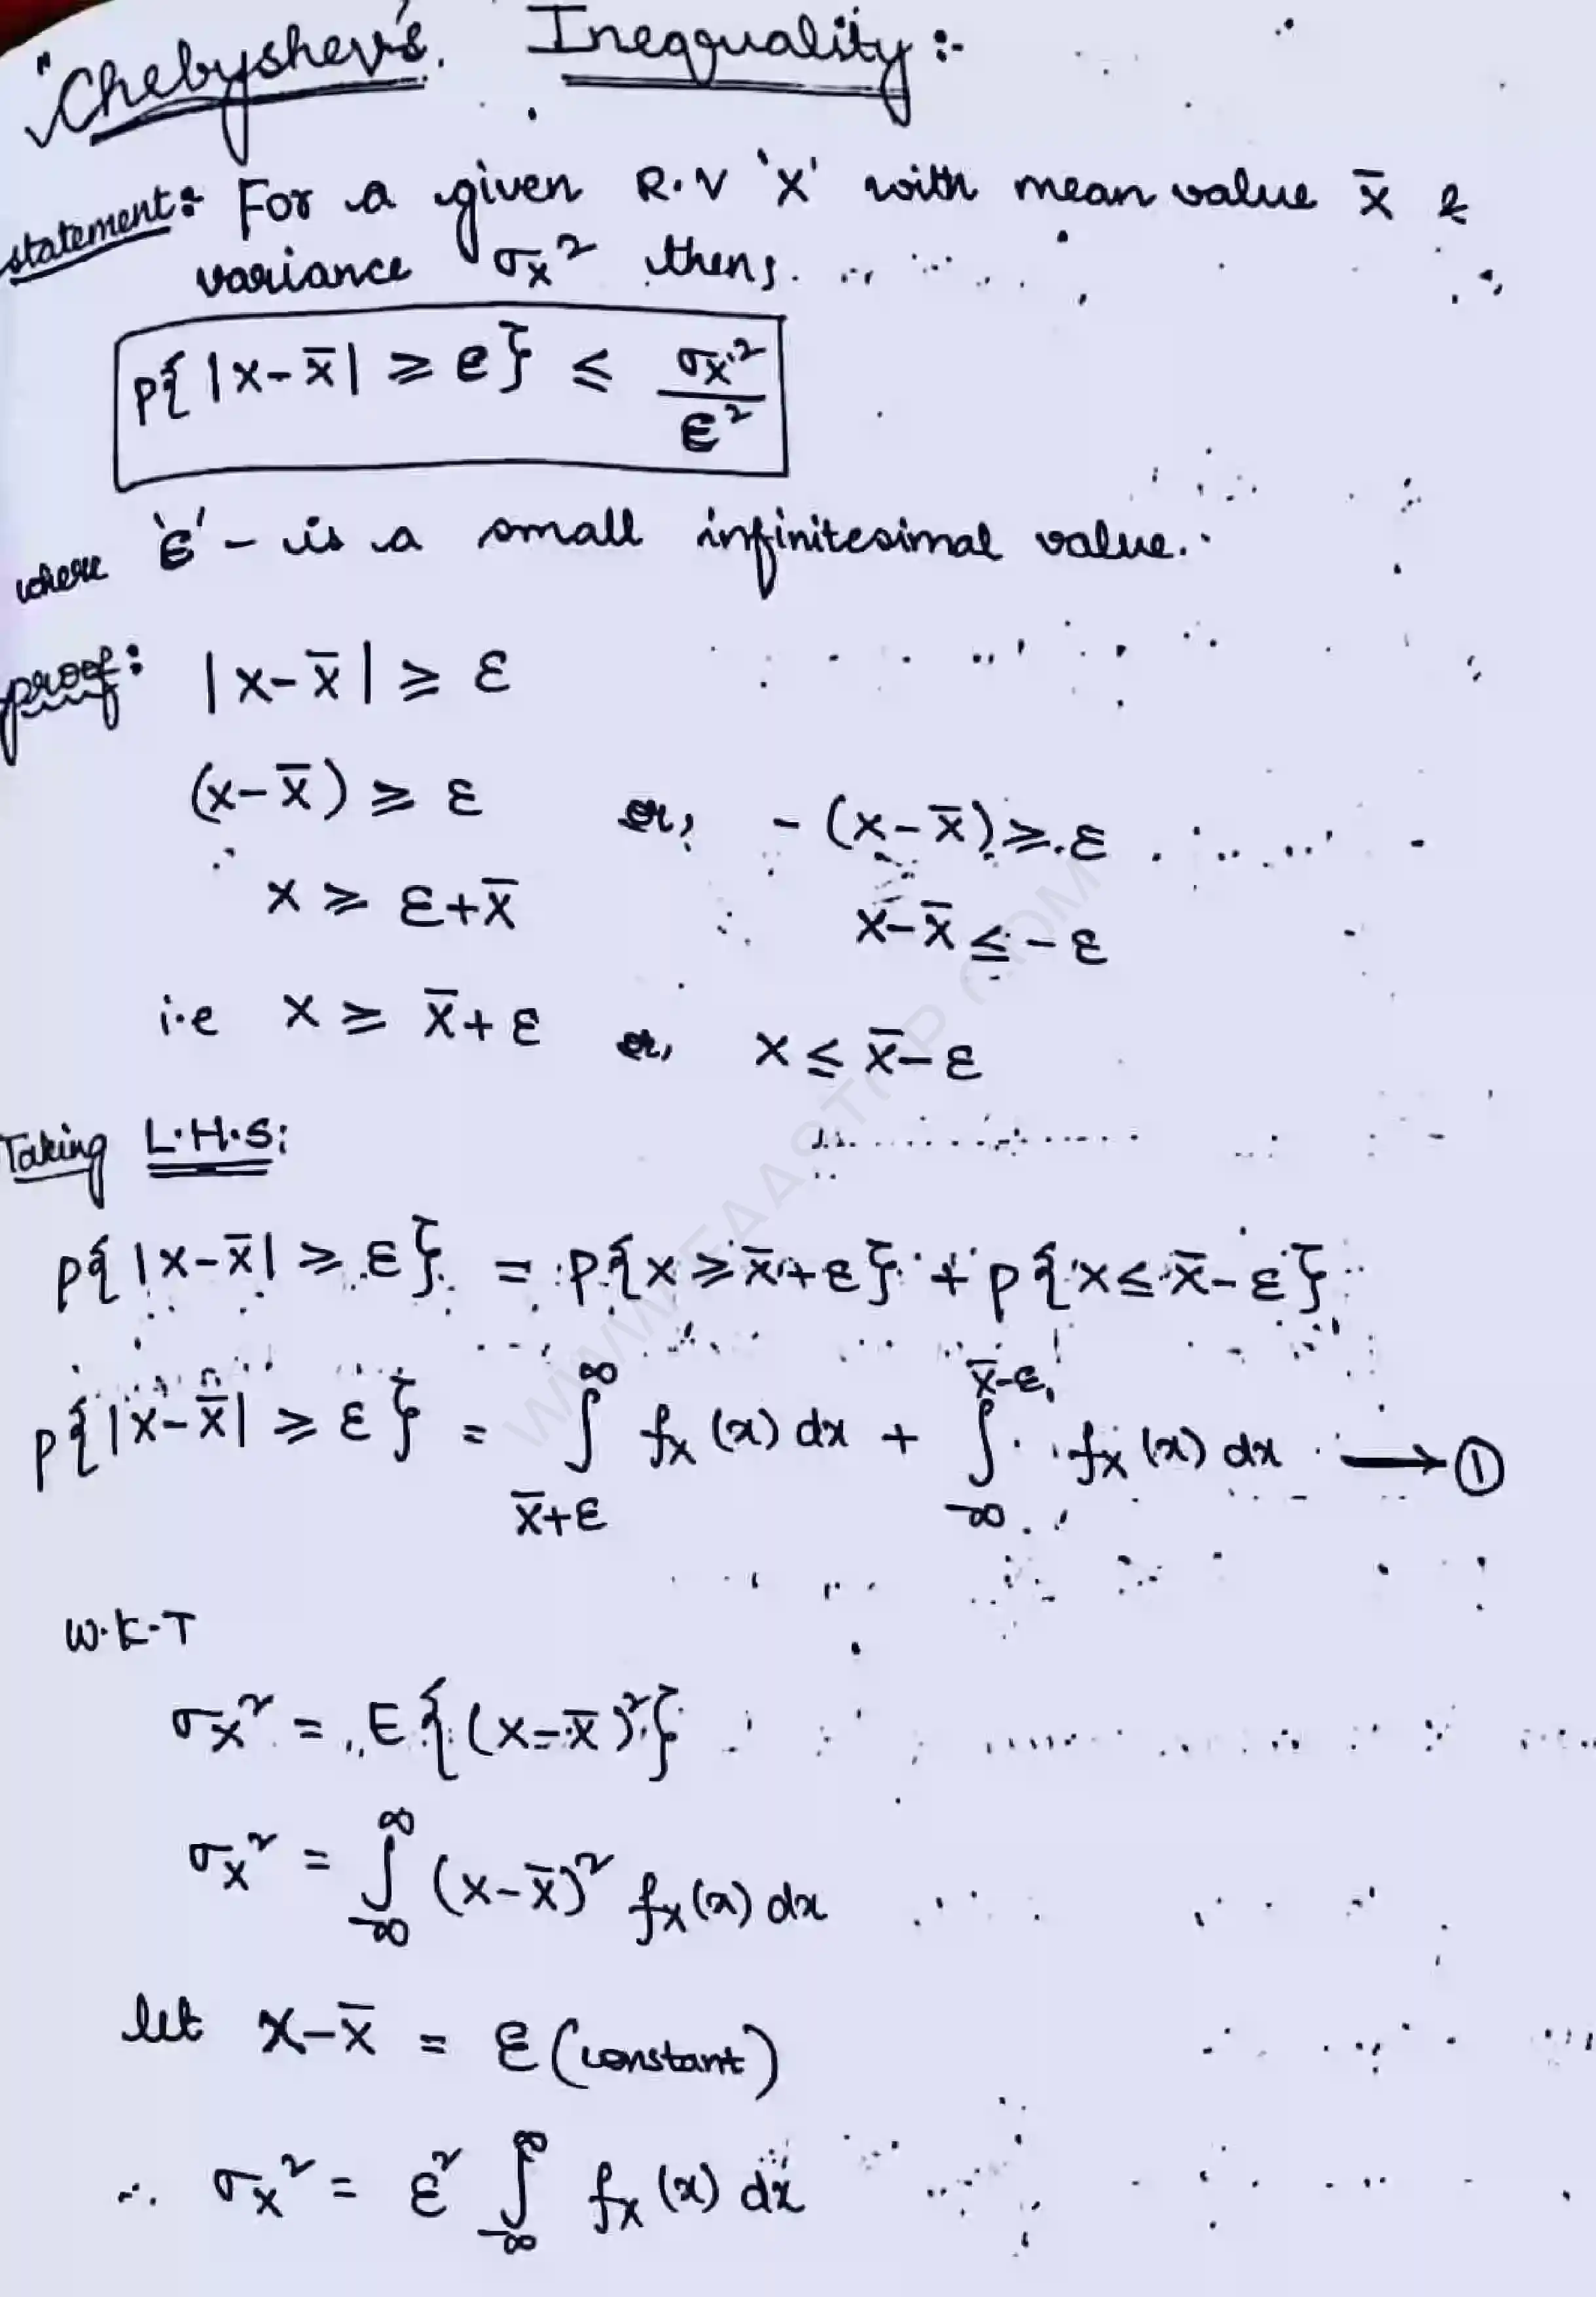 "Chebyshev's. Inequality:-
statement:- For a given R.V 'X' with mean value X̄ &
variance σx² then,
P{|X-X̄| ≥ ε} ≤ σx²/ε²
where 'ε' - is a small infinitesimal value.
proof: |X-X̄| ≥ ε
(X-X̄) ≥ ε or, -(X-X̄) ≥ ε
X ≥ ε+X̄ X-X̄ ≤ -ε
i.e X ≥ X̄+ε or, X ≤ X̄-ε
Taking L.H.S:
P{|X-X̄| ≥ ε} = P{X ≥ X̄+ε} + P{X ≤ X̄-ε}
P{|X-X̄| ≥ ε} = ∫_{X̄+ε}^{∞} fx(x) dx + ∫_{-∞}^{X̄-ε} fx(x) dx → ①
W.K.T
σx² = E{(X-X̄)²}
σx² = ∫_{-∞}^{∞} (X-X̄)² fx(x) dx
let x-X̄ = ε (constant)
∴ σx² = ε² ∫_{-∞}^{∞} fx(x) dx